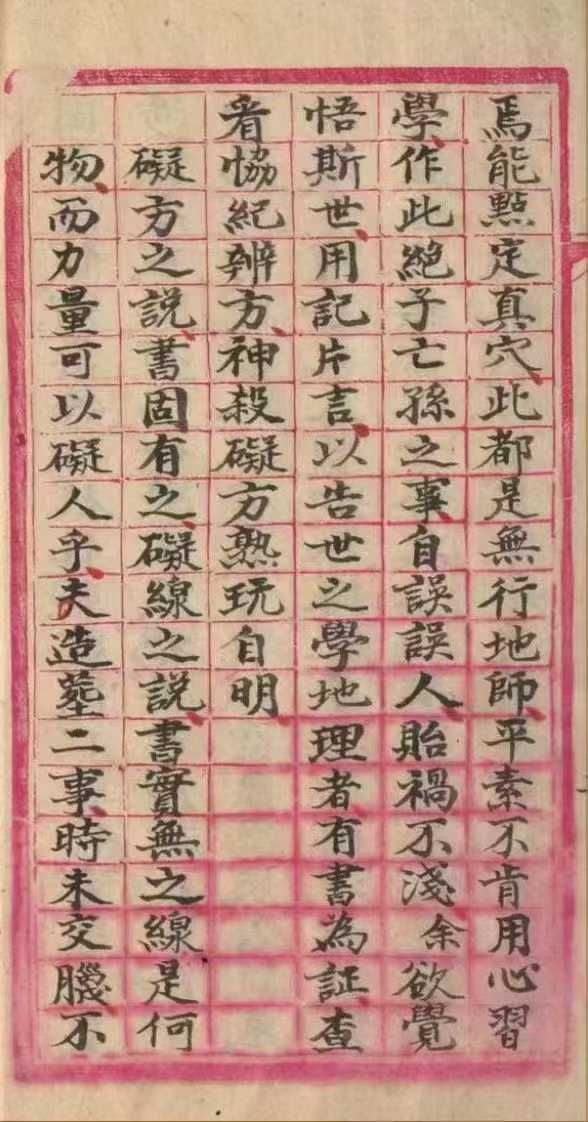 焉能點定真穴此都是無行地師平素不肯用心習
學作此絕子亡孫之事自誤誤人貽禍不淺余欲覺
悟斯世用記片言以告世之學地理者有書為証查
看恊紀辨方神殺礙方熟玩自明
礙方之説書固有之礙線之説書實無之線是何
物而力量可以礙人乎夫造塟二事時未交臘不